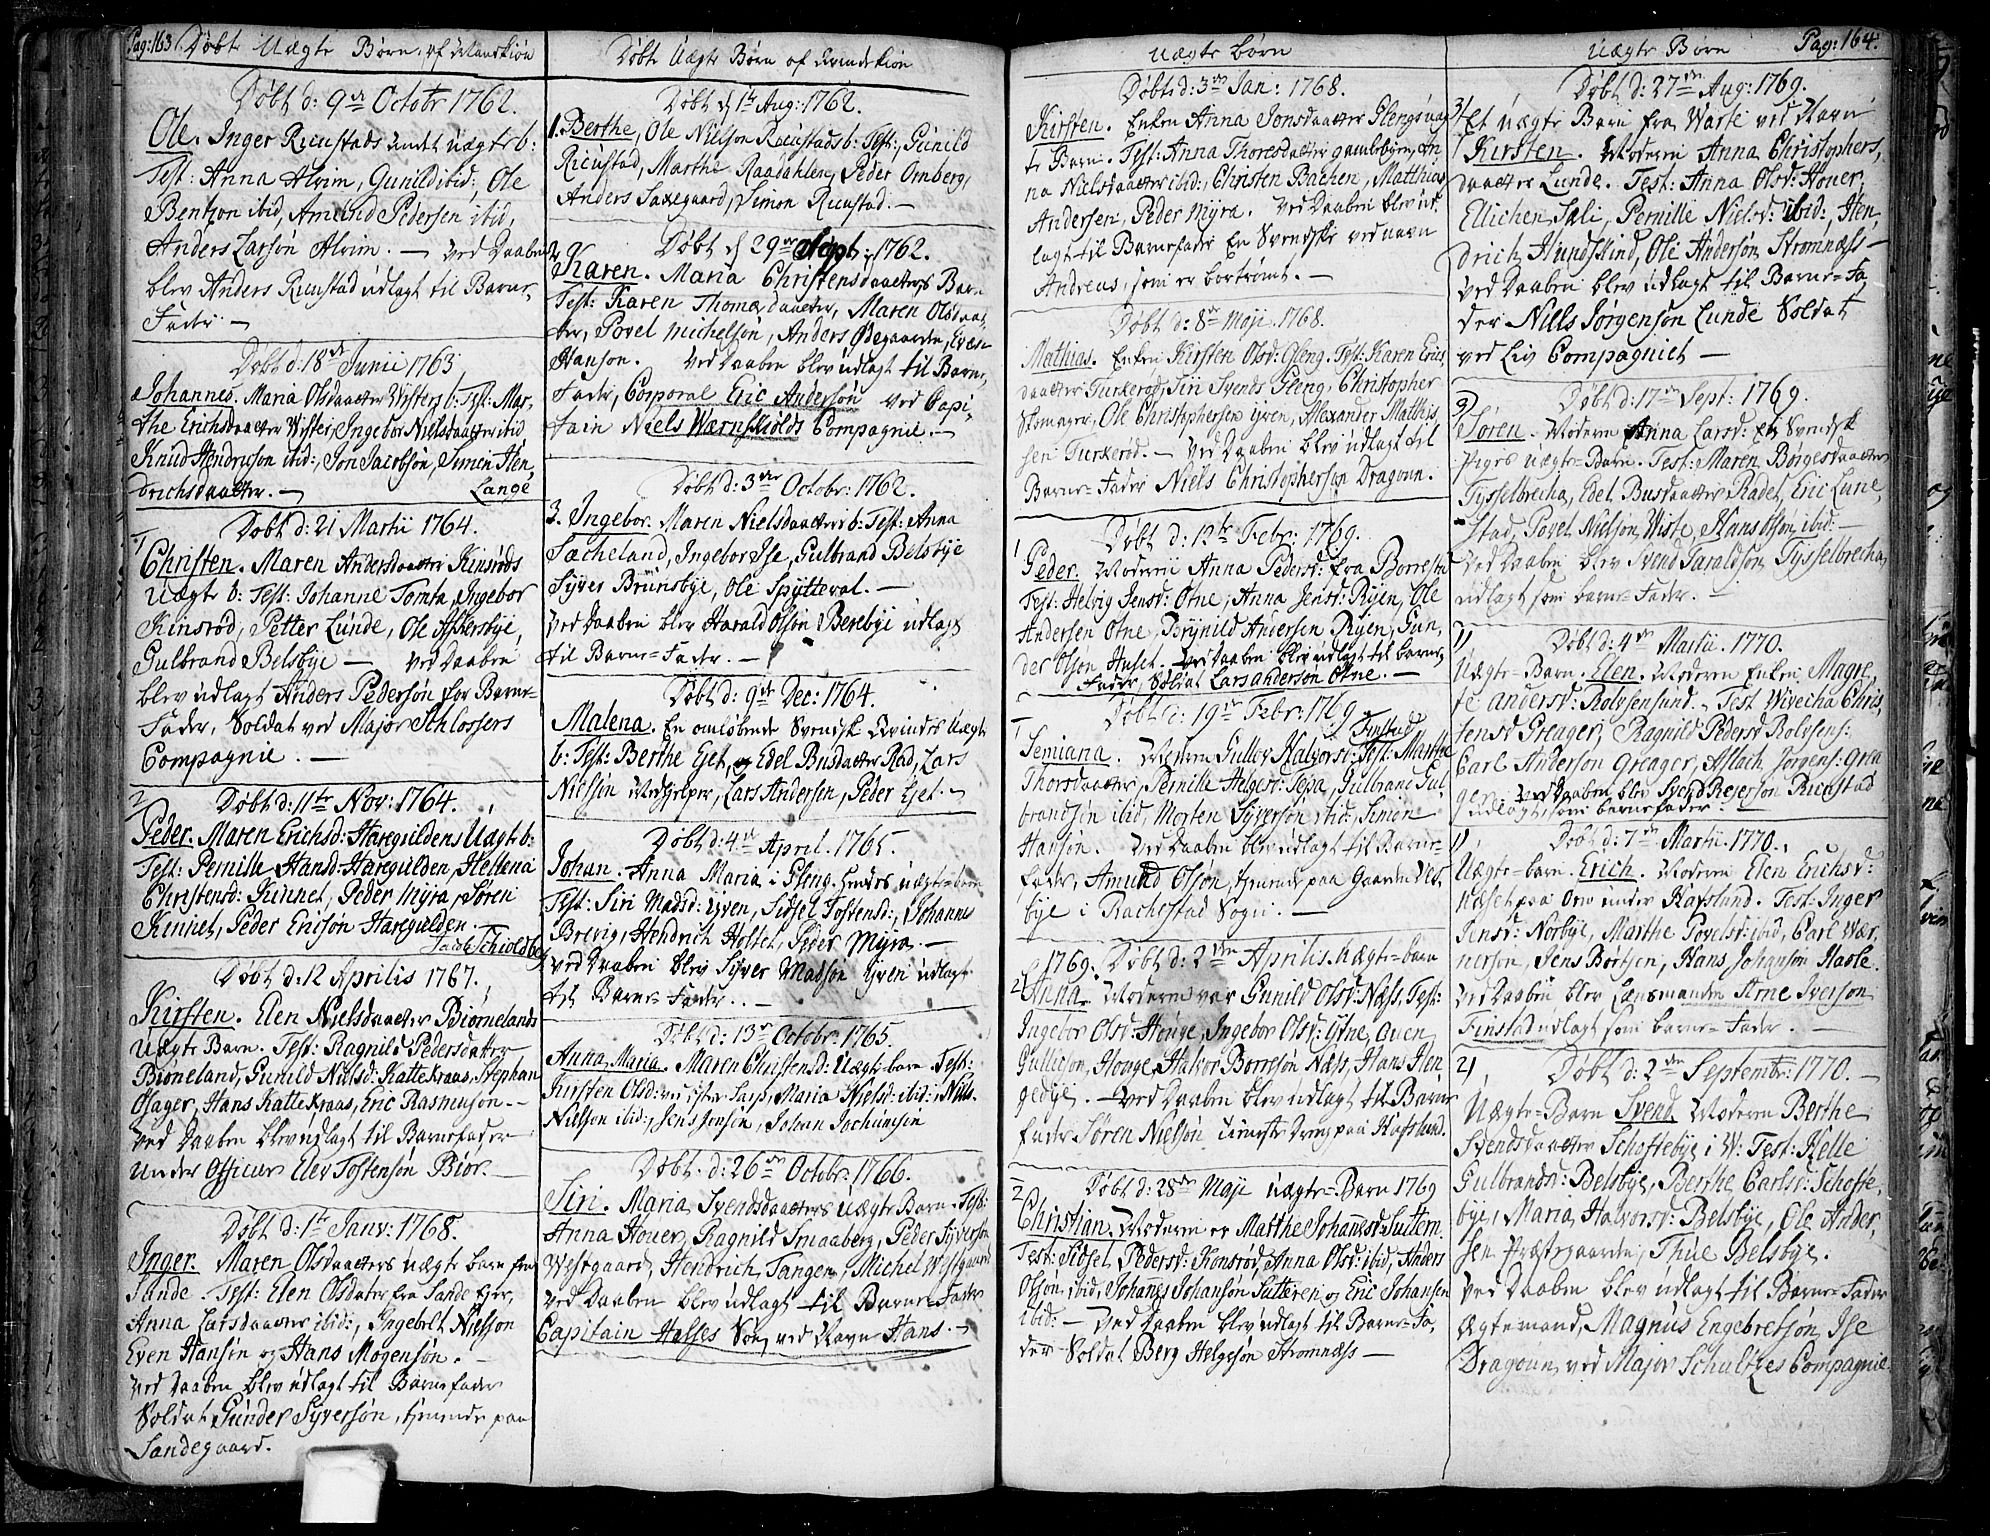 Pag: 163 Døbte Uægte Børn, af Mandkiøn
Døbt d: 9de Octobr 1762.
Ole. Inger Ricustads Uægte b:
Test: Anna Alvim, Gunild ibid; Ole
Bentzon ibid, Amund Pedersen ibid,
Anders Larsøn Alvim. — Ved Daaben
blev Anders Ricustad udlagt til Barne-
Fader. —
Døbt d: 18de Junii 1763
Johannes. Maria Olsdaatter Wisters b: Test: Mar-
the Erichsdaatter Wister, Ingebor Nielsdaatter ibid
Knud Hendricson ibid:, Jon Jacobsøn, Simen Hen-
drichsdaatter. — Lange
Døbt d: 21 Martii 1764.
1 Christen. Maren Andersdaatter Kinrøds
Uægte b: Test: Johanne Tomta, Ingebor
Kinsrød, Petter Lunde, Ole Askersbye,
Gulbrand Belsbye — Ved Daaben
blev udlagt Anders Pedersøn for Barne-
Fader, Soldat ved Major Schlossers
Compagnie. —
2 Døbt d: 11te Nov: 1764.
Peder. Maren Erichsd: Haregüldens Uægt b:
Test: Pernille Hansd Haregülden, Hellena
Christensd: Kinnet, Peder Myra, Søren
Kinnet, Peder Ericsøn Haregulden.
Døbt d: 12 Aprilis 1767.
Kirsten. Elen Nielsdaatter Biørnelands
Uægte Barn. Test: Ragnild Pedersdatter
Biørneland, Gunild Nielsd: Kattekraas, Stephan
Osager, Hans Kattekraas, Eric Rasmusøn. —
Ved Daaben blev udlagt til Barnefader
Under Officier Elev Tostensøn Biør. —
Døbt d: 1te Janv: 1768.
Inger. Maren Olsdaatters uægte barn fra
Sande. Test: Elen Olsdater fra Sande Ejer,
Anna Larsdaatter ibid:, Ingebret Nielson
Even Hansøn og Hans Mogensøn. —
Ved Daaben blev udlagt til Barnefader
Soldat Günder Syversøn, tienende paa
Sandegaard.
Døbte Uægte Børn af Qvindekiøn
Døbt d 1te Aug: 1762.
1. Berthe, Ole Nielson Ricustads b: Test: Gunild
Ricustad, Marthe Raadahlen, Peder Ornberg,
Anders Saxegaard, Simon Ricustad. —
2. Døbt d 29de Sept: 1762.
Karen. Maria Christensdaatters Barn
Test: Karen Thomædaatter, Maren Olsdaa-
ter, Povel Michelsøn, Anders Ødegaarden, Even
Hanson. Ved Daaben blev udlagt til Barne-
Fader, Corporal Eric Andersøn ved Capi-
tain Niels Wærnskiølds Compagnie. —
Døbt d: 3die Octobr: 1762.
3. Ingebor. Maren Nielsdaatters b: Test: Anna
Sæcheland, Ingebor Ise, Gulbrand Belsbye
Syver Brunsbye, Ole Spytteval. —
Ved Daaben blev Harald Olsøn Berebye udlagt
til Barne-Fader. —
Døbt d: 9de Dec: 1764.
Malena. En omløbende Svensk Qvindes Uægte
b: Test: Berthe Eget, og Edel Busdaatter Rad, Lars
Nielsøn Medhjelper, Lars Andersen, Peder Eget. —
Døbt d: 4de April. 1765.
Johan. Anna Maria i Gleng. hendes uægte-barn
Test: Siri Madsd: Yven, Sidsel Tostensd:, Johannes
Brevig, Hendrich Holtet, Peder Myra. —
Ved Daaben blev Syver Madsøn Yven udlagt
til Barne-Fader. —
Døbt d: 13de Octobr: 1765.
Anna Maria. Maren Christensd: Uægte barn. Test:
Kirsten Olsd: Maria Nielsd: ibid: Niels
Nillson ibid:, Jens Jonsen, Johan Jochumsen
Døbt. d: 26de Octobr: 1766.
Siri. Maria Svendsdaatters Uægte Barn. Test:
Anna Houer, Ragnild Smaaberg, Peder Syversøn
Westgaard, Hendrich Tangen, Michel Westgaard
Ved Daaben blev udlagt til Barne-Fader
Capitain Hasses Søn, ved Navn Hans. —
Uægte børn
Døbt d: 3die Jan: 1768.
Kirsten. Enken Anna Jonsdaatter Glengs uæg-
te Barn. Test: Anna Thoresdaatter gamlebyen, An-
na Nielsdaatter ibid:, Christen Bachen, Matthias
Andersen, Peder Myra. Ved Daaben blev ud-
lagt til Barnefader En Svenske ved navn
Andreas, som er bortrømt. —
Døbt d: 8de Maji 1768.
Mathias. Enken Kirsten Olsd: Gleng. Test: Karen Erics-
daatter Turkerød, Siri Svends Gleng, Christopher
Skomager, Ole Christophersen Yven, Alexander Matthis-
sen Turkerød. — Ved Daaben blev udlagt til
Barne-Fader Niels Christopherson Dragoun.
1 Døbt d: 12te Febr: 1769.
Peder. Moderen Anna Pedersd: fra Borrestad
Test: Helvig Jensd: Otne, Anna Jensd: Ryen, Ole
Andersen Otne, Brynild Andersen Ryen, Gun-
der Olsøn Huset. Ved Daaben blev udlagt til barne-
Fader, Soldat Lars Anderson Otne. —
1 Døbt d: 19de Febr: 1769
Semiana. Moderen Gullov Halvorsd: Finstad Test: Marthe
Thorsdaatter, Pernille Helgesd: Tepa, Gulbrand Gul-
brandsøn ibid, Morten Syversøn ibid, Simon
Hansøn. Ved Daaben blev udlagt til Barne-
fader, Amund Olsøn, tienende paa Gaarden
bye i Rachestad Sogn. —
2 1769. Døbt d: 2den Aprilis. Uægte-barn
Anna. Moderen var Gunild Olsd: Næss, Test:
Ingebor Olsd: Houge, Ingebor Olsd: Otne, Aven
Gullicson, Houge, Halvor Borresøn Næss, Hans Hen-
gedye. — Ved Daaben blev udlagt til Barne
fader Søren Nielsøn tieneste dreng paa Hafslund.
2 Døbt d: 28de Maji Uægte-Barn 1769
Christian. Moderen er Marthe Johannesd: Sutteren.
Test: Sidsel Pedersd: Konsrød, Anna Olsd: ibid, Anders
Olsøn ibid, Johannes Johansøn Sutteren og Eric Johansen
ibid: — Ved Daaben blev udlagt til Barne-Fa-
der Soldat Berg Helgesøn Strømnæss —
Uægte Børn Pag: 164.
Døbt d: 27de Aug: 1769.
3 Et Uægte Barn fra Warte ved Navn
Kirsten. Moderen Anna Christophers-
daatter Lunde. Test: Anna Olsd: Houer,
Ellichen Sæli, Pernille Nielsd: ibid:, Hen-
drich Hundskind, Ole Andersøn Strømnæss —
Ved Daaben blev udlagt til Barne-Fa-
der Niels Jørgensøn Lunde Soldat
ved Liv Compagniet —
Døbt d: 17de Sept: 1769.
3 Søren. Moderen Anna Larsd: En Svendsk
Piges Uægte-Barn. Test: Maren Børgesdaatter
Tysselbrecha, Edel Busdaatter Radet, Eric Lune-
stad, Povel Nielson Wiste, Hans Olsøn ibid: —
Ved Daaben blev Svend Taraldsøn Tysselbrecha
udlagt som barne-Fader. —
1 Døbt d: 4de Martii. 1770.
Uægte-Barn. Elen. Moderen Enken Magre-
te Andersd: Rolvsensund. Test Wivecha Chris-
tensd Greager, Ragnild Pedersd Rolvsens:
Carl Anderson Greager, Aslach Jørgens: Grea-
ger. Ved Daaben blev Svend Rejerson Ricustad
udlagt som barnefader —
1 Døbt d: 7de Martii. 1770.
Uægte-barn. Erich. Moderen Elen Erichsd:
Huset paa under Hafslund. Test: Inger
Jensd: Norbye, Marthe Povelsd: ibid, Carl Wær-
nerson, Jens Borgen, Hans Johanson Hasle.
Ved Daaben blev Lænsmanden Arne Iverson
Finstad udlagt som barne-Fader. —
2 Døbt d: 2den Septembr: 1770. —
Uægte-Barn Svend. Moderen Berthe
Svendsdaatter Schoftebye i W: Test: Helle
Gulbrandsd: Belsbye, Berthe Carlsd: Schofte-
bye, Maria Halvorsd: Belsbye, Ole Ander-
sen Præstegaarden, Thue Belsbye.
Ved Daaben blev udlagt til Barne-Fader
Ægtemand, Magnus Engebretsøn Ise
Dragoun ved Major Schultzes Compagnie